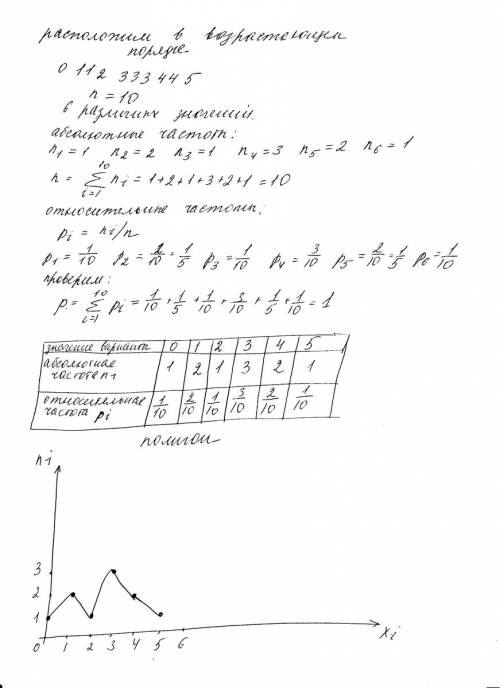 расположим в возрастающем
порядке
0 11 2 333 44 5
n = 10
6 различных значений.
абсолютные частоты:
n1 = 1 n2 = 2 n3 = 1 n4 = 3 n5 = 2 n6 = 1
n = 10 ∑ i=1 ni = 1+2+1+3+2+1 = 10
относительные частоты:
pi = ni/n
p1 = 1/10 p2 = 2/10 = 1/5 p3 = 1/10 p4 = 3/10 p5 = 2/10 = 1/5 p6 = 1/10
проверим:
p = 10 ∑ i=1 pi = 1/10 + 1/5 + 1/10 + 3/10 + 1/5 + 1/10 = 1
значение варианта 0 1 2 3 4 5
абсолютная
частота n1 1 2 1 3 2 1
относительная
частота pi 1/10 2/10 1/10 3/10 2/10 1/10
полигон
ni
3
2
1
0 1 2 3 4 5 6 xi